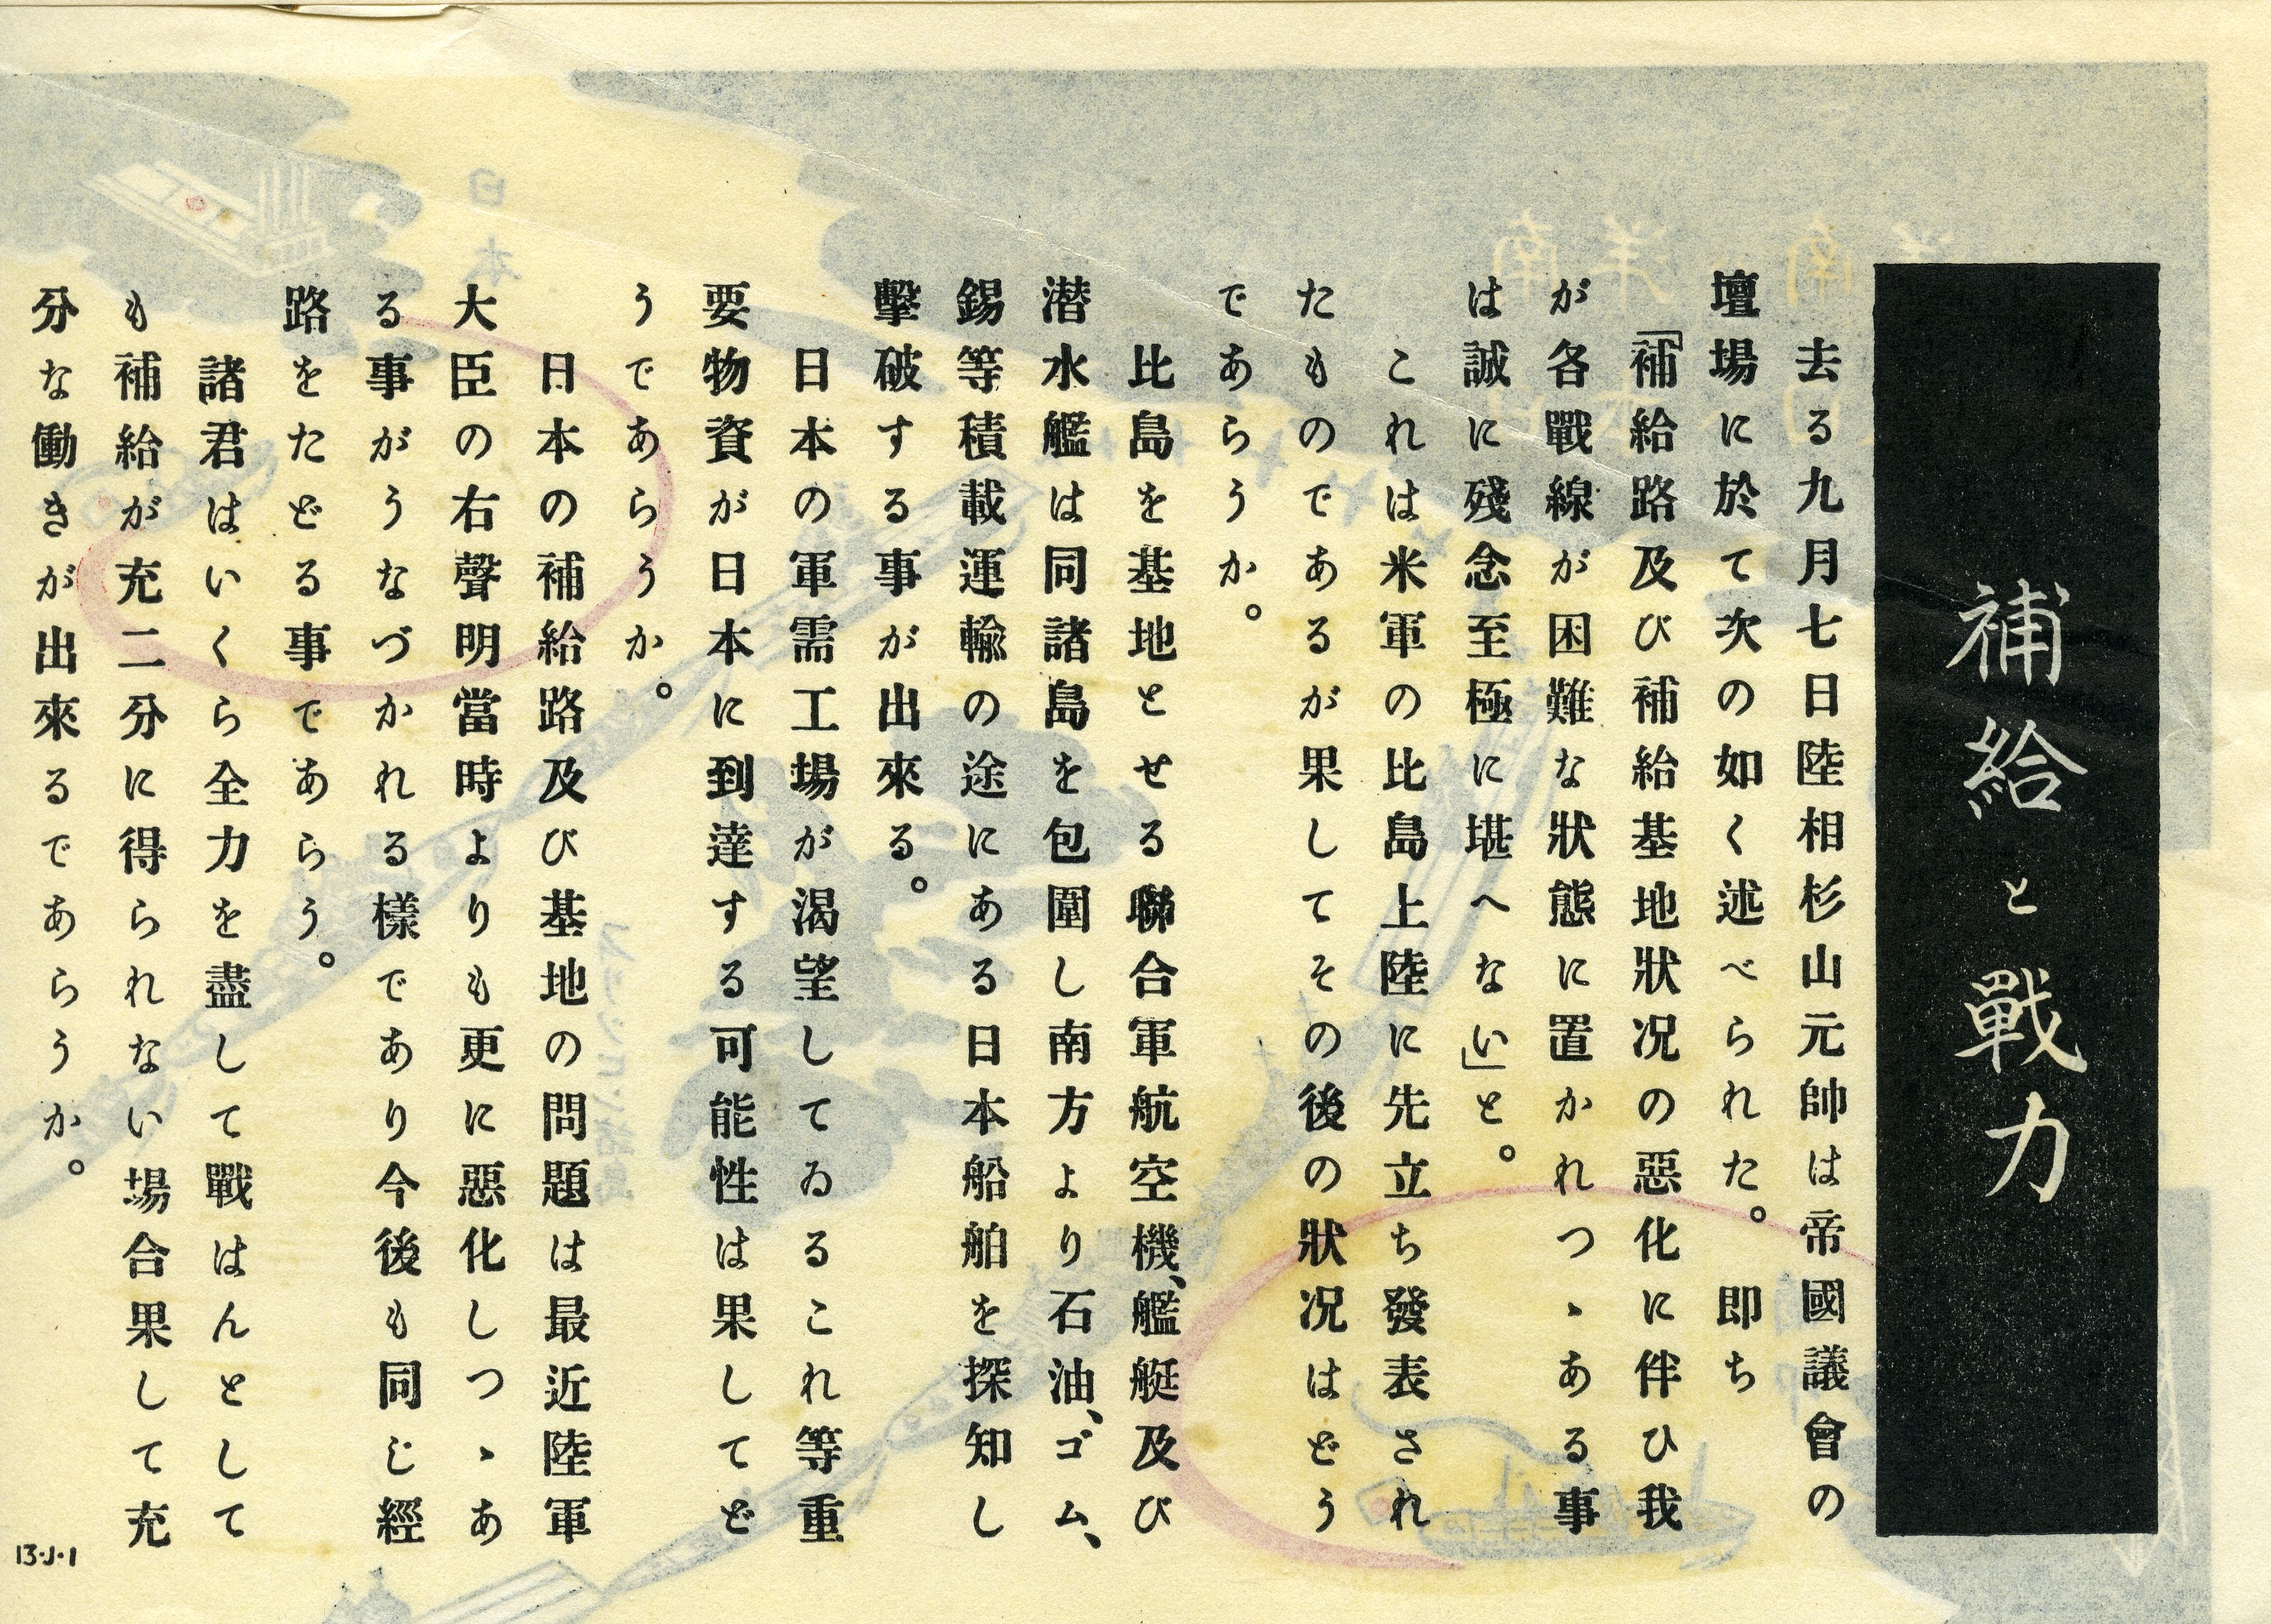 補給と戰力
去る九月七日陸相杉山元帥は帝國議會の
壇場に於て次の如く述べられた。即ち
「補給路及び補給基地狀況の惡化に伴ひ我
が各戰線が困難な狀態に置かれつゝある事
は誠に殘念至極に堪へない」と。
これは米軍の比島上陸に先立ち發表され
たものであるが果してその後の狀況はどう
であらうか。
比島を基地とせる聯合軍航空機、艦艇及び
潜水艦は同諸島を包圍し南方より石油、ゴム、
錫等積載運輸の途にある日本船舶を探知し
擊破する事が出來る。
日本の軍需工場が渴望してゐるこれ等重
要物資が日本に到達する可能性は果してど
うであらうか。
日本の補給路及び基地の問題は最近陸軍
大臣の右聲明當時よりも更に惡化しつゝあ
る事がうなづかれる樣であり今後も同じ經
路をたどる事であらう。
諸君はいくら全力を盡して戰はんとして
も補給が充二分に得られない場合果して充
分な働きが出來るであらうか。
13-J-1
日本
南洋
南洋